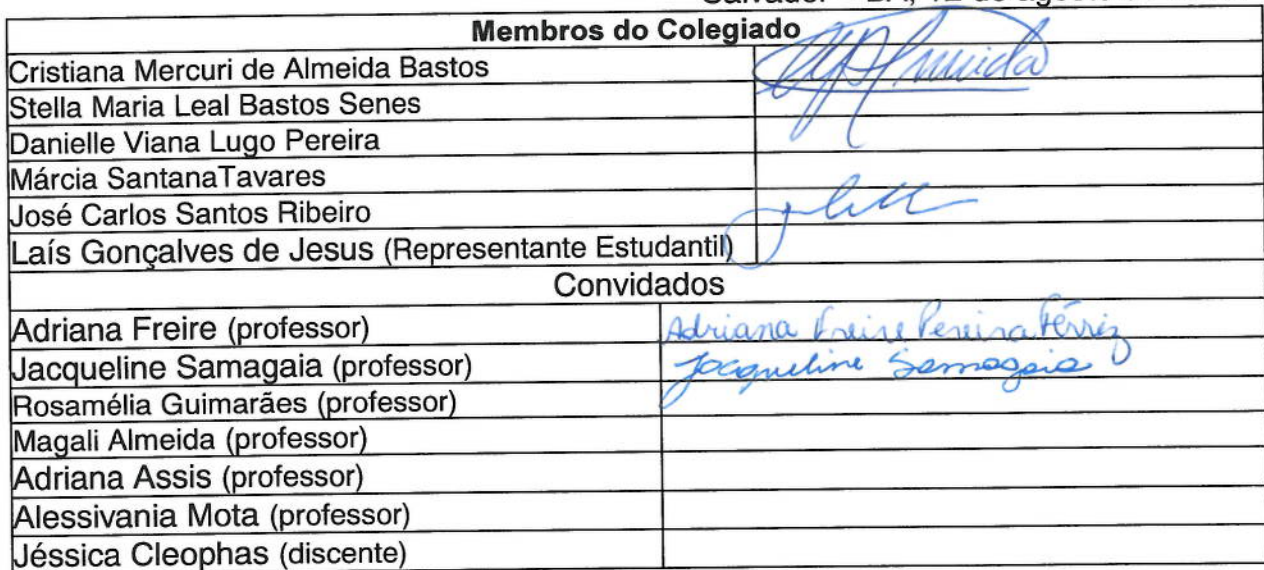 Membros do Colegiado
Cristiana Mercuri de Almeida Bastos
Stella Maria Leal Bastos Senes
Danielle Viana Lugo Pereira
Márcia SantanaTavares
José Carlos Santos Ribeiro
Laís Gonçalves de Jesus (Representante Estudantil)
Convidados
Adriana Freire (professor) Adriana Freire Pereira Férriz
Jacqueline Samagaia (professor) Jacqueline Samagaia
Rosamélia Guimarães (professor)
Magali Almeida (professor)
Adriana Assis (professor)
Alessivania Mota (professor)
Jéssica Cleophas (discente)